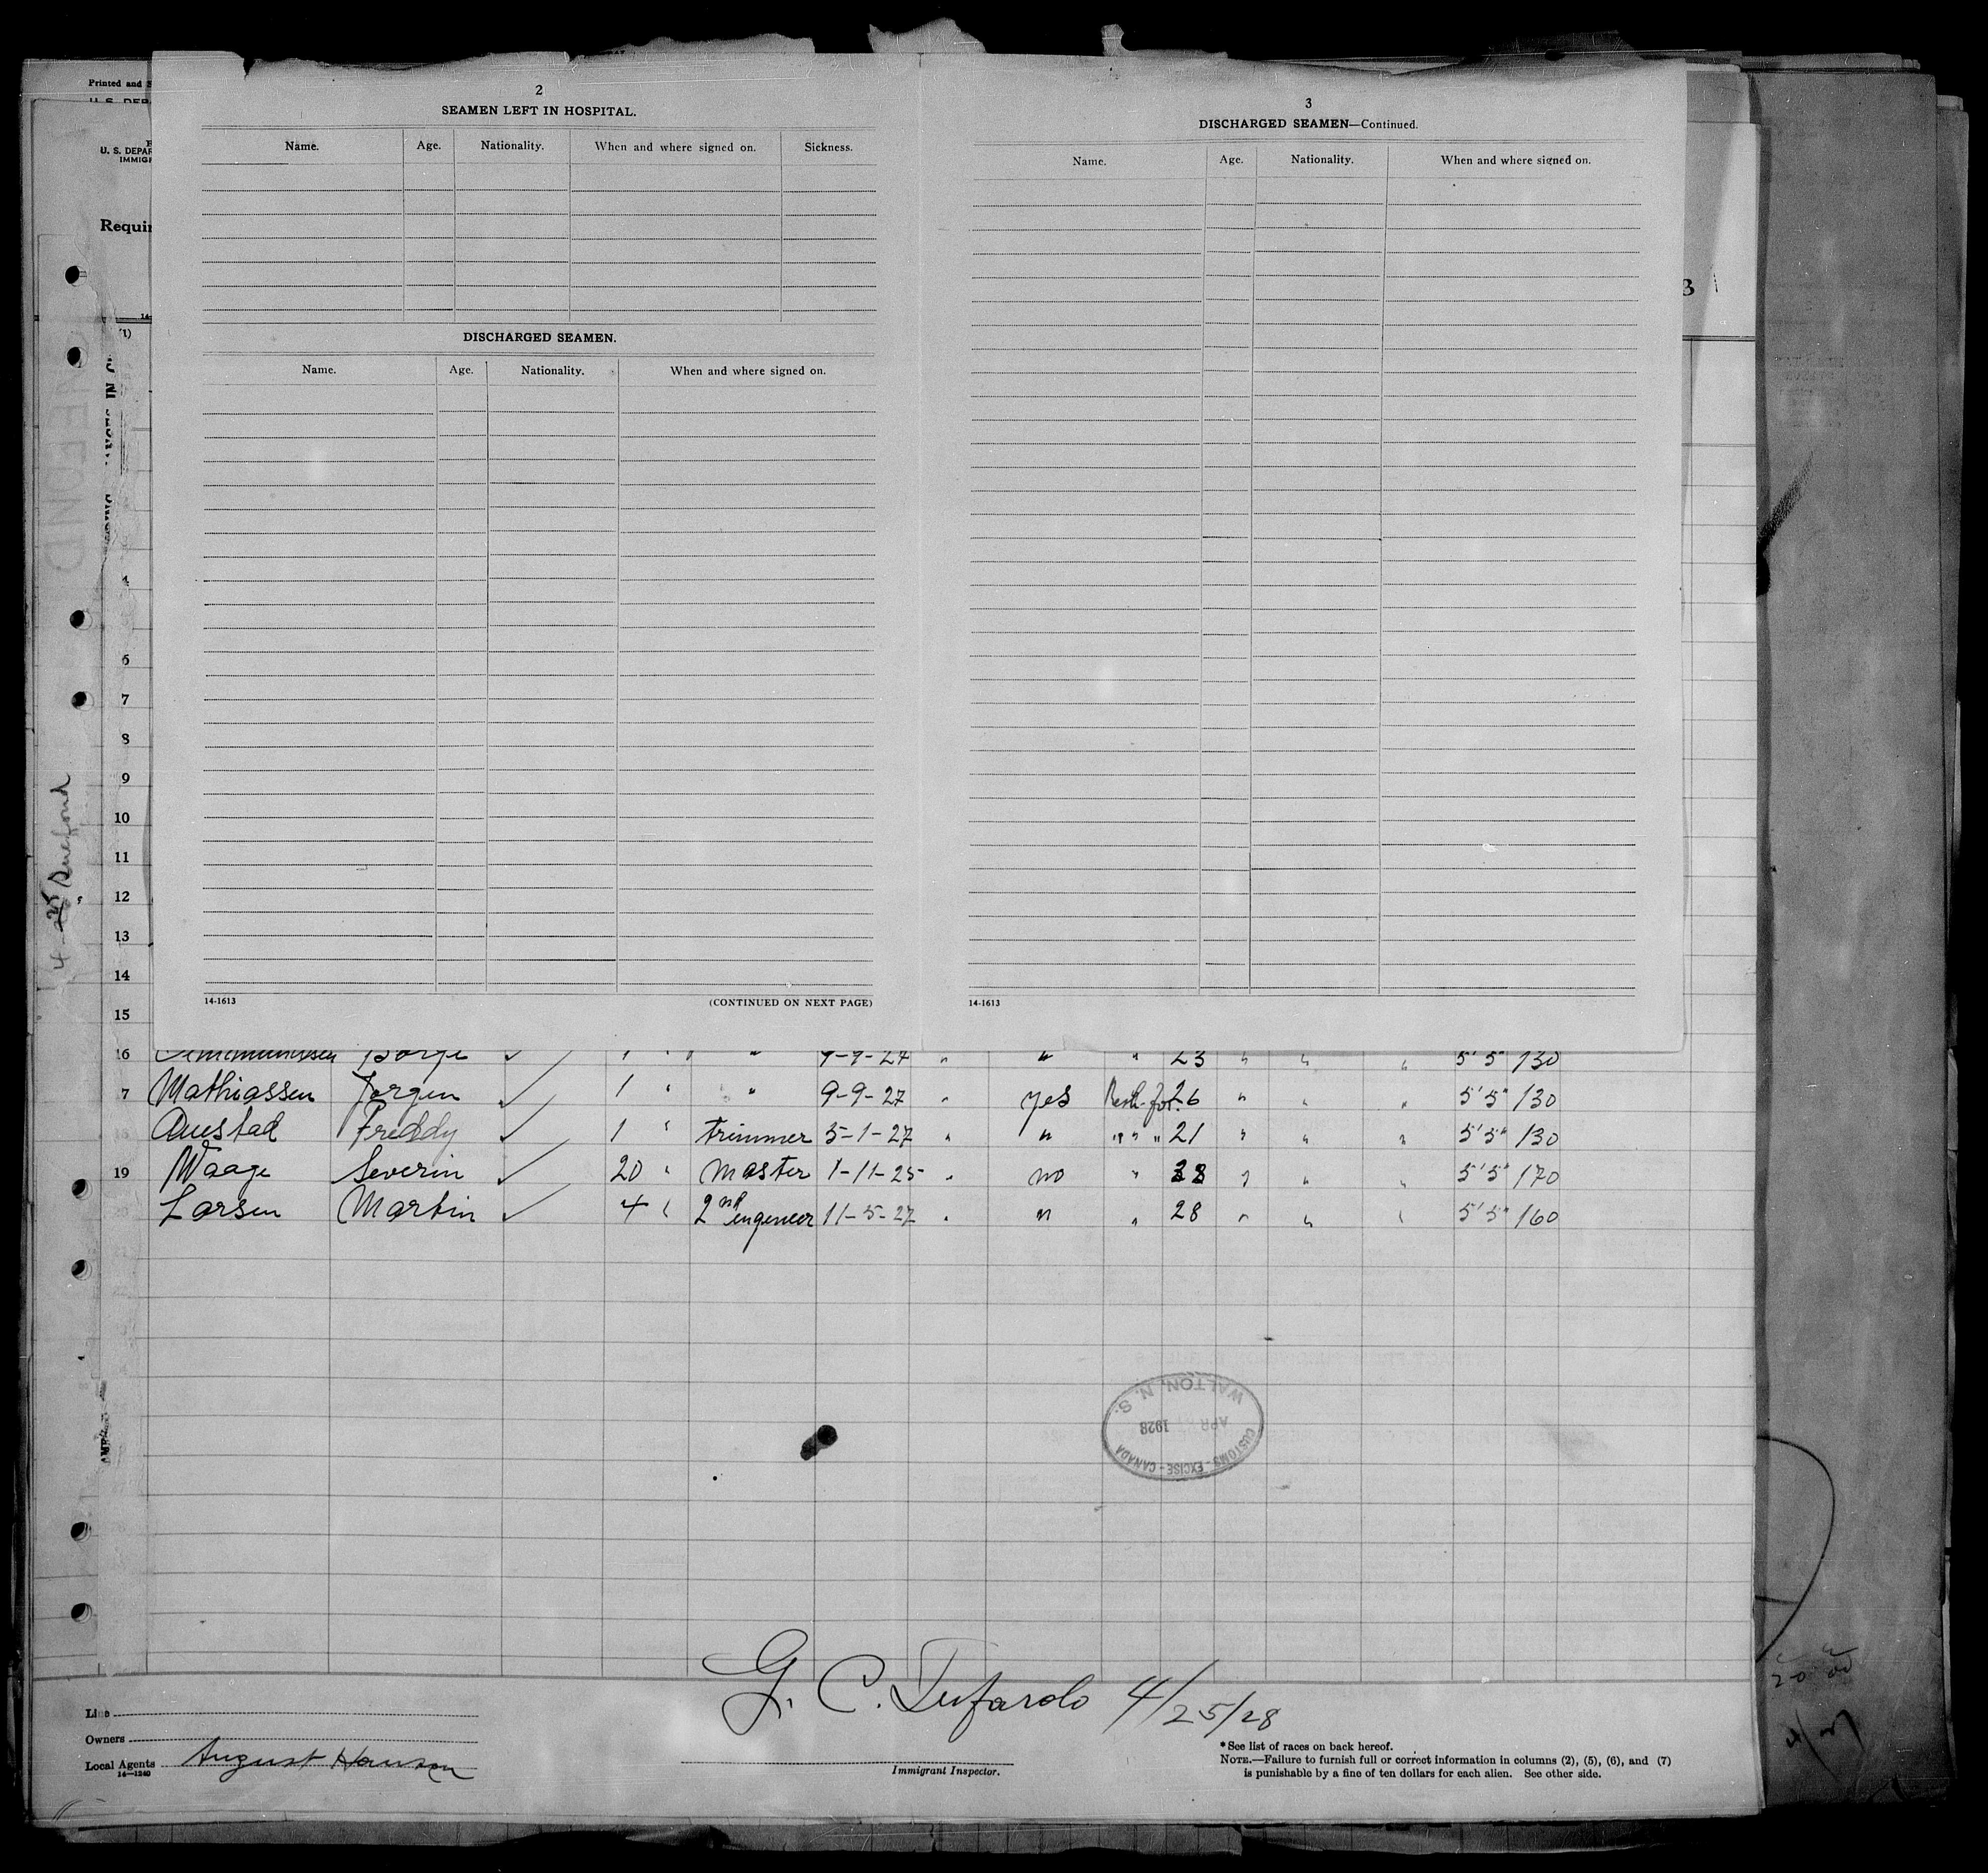 Printed and
U. S. DEPAR
IMMIG
Requir
2
SEAMEN LEFT IN HOSPITAL.
Name. Age. Nationality. When and where signed on. Sickness.
DISCHARGED SEAMEN.
Name. Age. Nationality. When and where signed on.
14-1613 (CONTINUED ON NEXT PAGE)
3
DISCHARGED SEAMEN—Continued.
Name. Age. Nationality. When and where signed on.
14-1613
(1)
4
6
7
8
9
10
11
12
13
14
15
16 1 " 23 " " " 5'5" 130
7 Mathiassen Jorgen ✓ 1 " " 9-9-27 " yes 26 " " " 5'5" 130
18 Austad Freddy ✓ 1 " trimmer 5-1-27 " " " " " 21 " " " 5'5" 130
19 Waage Severin ✓ 20 " Master 1-11-25 " no " 38 " " " 5'5" 170
20 Larsen Martin ✓ 4 " 2nd engeneer 11-5-27 " " " 28 " " " 5'5" 160
WALTON, N. S.
APR 1928
CUSTOMS-EXCISE-CANADA
G. C. Tufarolo 4/25/28
Immigrant Inspector.
Line
Owners
Local Agents August Hansen
14—1240
*See list of races on back hereof.
NOTE.—Failure to furnish full or correct information in columns (2), (5), (6), and (7)
is punishable by a fine of ten dollars for each alien. See other side.